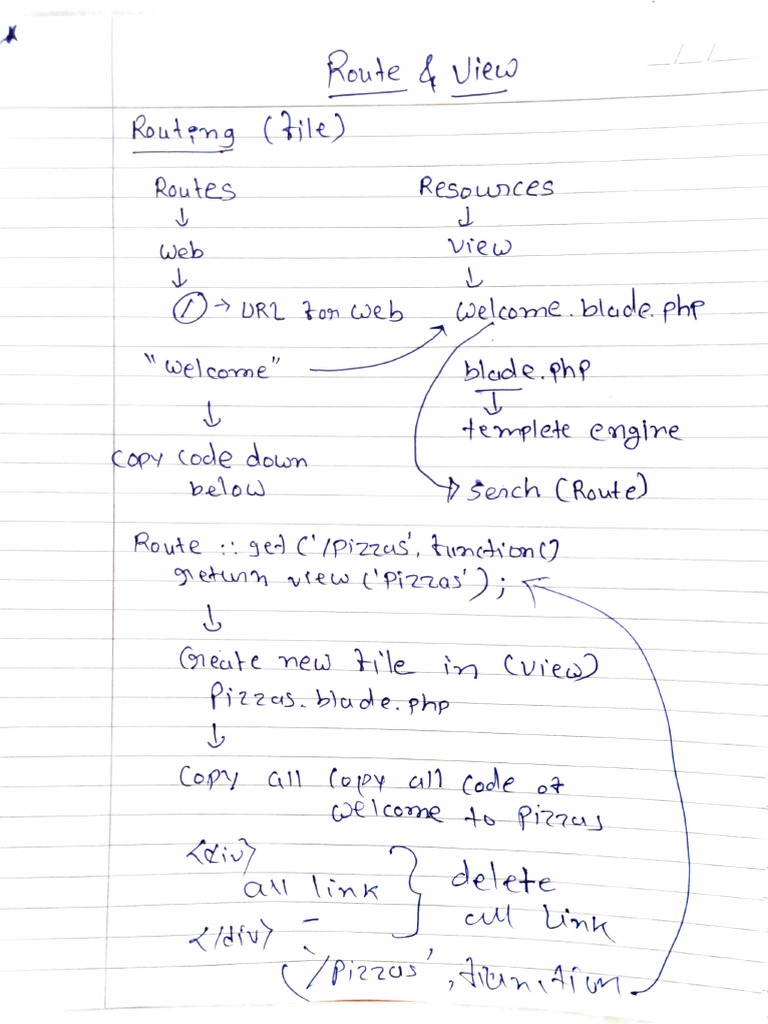 Route & View
Routing (file)
Routes Resources
↓ ↓
Web View
↓ ↓
/ → URL for web Welcome.blade.php
"Welcome" blade.php
↓ ↓
templete engine
Copy code down
below Serch (Route)
Route :: get ('/Pizzas', function()
return view ('Pizzas');
↓
Create new file in (view)
Pizzas.blade.php
↓
Copy all Copy all code of
Welcome to Pizzas
<div>
all link } delete
all link
</div>
('/Pizzas',